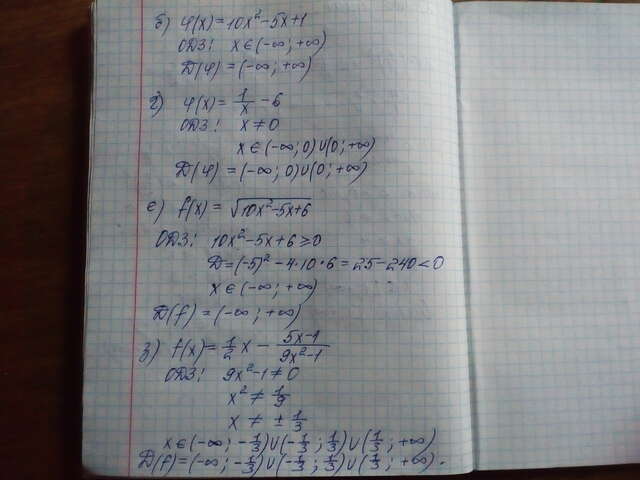 б) φ(x)=10x²-5x+1
ОДЗ: x∈(-∞;+∞)
D(φ)=(-∞;+∞)
г) φ(x)=1/x-6
ОДЗ: x≠0
x∈(-∞;0)∪(0;+∞)
D(φ)=(-∞;0)∪(0;+∞)
е) f(x)=√10x²-5x+6
ОДЗ: 10x²-5x+6≥0
D=(-5)²-4·10·6=25-240<0
x∈(-∞;+∞)
D(f)=(-∞;+∞)
з) f(x)=1/2x-5x-1/9x²-1
ОДЗ: 9x²-1≠0
x²≠1/9
x≠±1/3
x∈(-∞;-1/3)∪(-1/3;1/3)∪(1/3;+∞)
D(f)=(-∞;-1/3)∪(-1/3;1/3)∪(1/3;+∞).